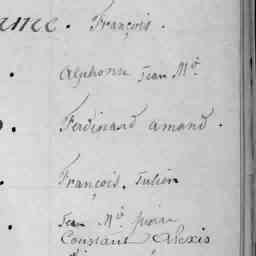 ance. François.
Alphonse Jean Mie.
Ferdinand amand.
François. Julien
Jean Mie
Constant Alexis